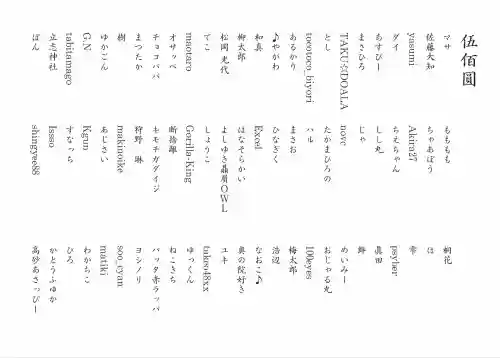 伍佰圓
マサ
佐藤大知
yasumi
ダイ
あすぴー
まさひろ
TAKU☆DOALA
とし
tocotoco_biyori
あるかり
♪やがわ
和真
柳太郎
松岡 光代
てこ
maotaro
オサッペ
チョコパパ
まつたか
樹
ゆかごん
G.N
tabitamago
立志神社
ぱん
もももも
ちゃあぼう
Akira27
ちえちゃん
しし丸
じゃ
novc
たかまひろの
ハル
まさお
ひなぎく
Excel
はなそらかい
よしゆき贔屓OWL
しょうこ
Gorilla-King
断捨離
キモチガダイジ
狩野 琳
makinoike
あじさい
Kgun
すなっち
Issso
shingyee88
桐花
ほ
幸
psyber
真田
蟬
めいみー
おじゃる丸
100eyes
梅太郎
浩辺
なおこ♪
奥の院好き
ユキ
takeo48x.x
ゆっくん
ねこきち
バッタ赤ラッパ
ヨシノリ
soo_cyan
matiki
わかちこ
ひろ
かとうふゆか
高砂あさっぴー